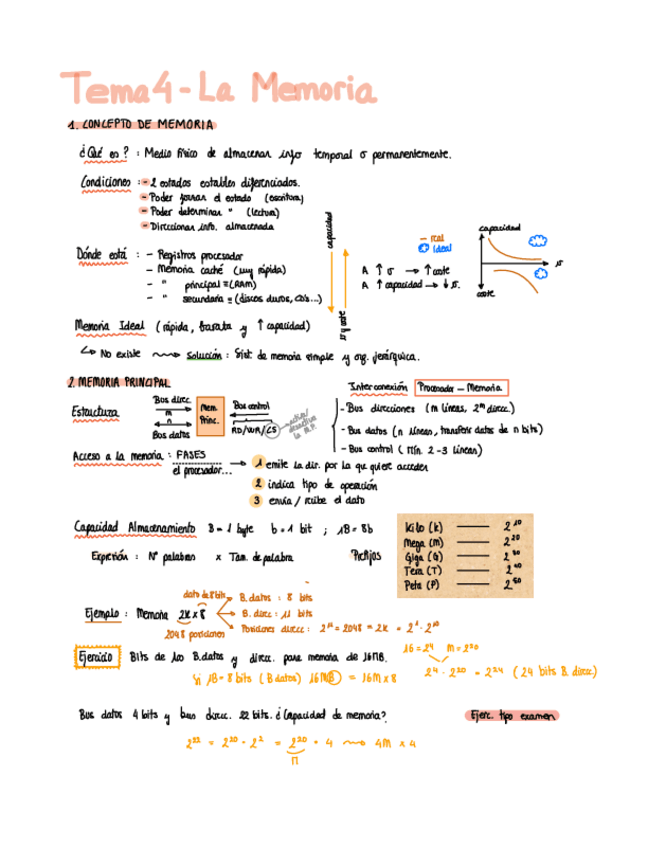 Tema 4 - La Memoria
1. CONCEPTO DE MEMORIA
¿Qué es? : Medio físico de almacenar info temporal o permanentemente.
Condiciones : - 2 estados estables diferenciados.
- Poder forzar el estado (escritura)
- Poder determinar " (lectura)
- Direccionar info. almacenada
Dónde está : - Registros procesador
- Memoria caché (muy rápida)
- " principal = (RAM)
- " secundaria = (discos duros, CD's...)
capacidad
σ y coste
- real
ideal
A ↑ σ → ↑ coste
A ↑ capacidad → ↓ σ.
capacidad
σ
coste
Memoria Ideal (rápida, barata y ↑ capacidad)
↳ No existe ⟿ Solución : Sist. de memoria simple y org. jerárquica.
2. MEMORIA PRINCIPAL
Estructura
Bus direc
m
n
Bus datos
Mem. Princ.
Bus control
RD/WR/CS
activa/
desactiva
la M.P.
Interconexión Procesador - Memoria
- Bus direcciones (m líneas, 2^m direcc.)
- Bus datos (n líneas, transfer datos de n bits)
- Bus control (Mín. 2-3 líneas)
Acceso a la memoria : FASES
el procesador...
1 emite la dir. por la que quiere acceder
2 indica tipo de operación
3 envía / recibe el dato
Capacidad Almacenamiento B = 1 byte b = 1 bit ; 1B = 8b
Expresión : Nº palabras x Tam. de palabra
Prefijos
Kilo (k) 2^10
Mega (M) 2^20
Giga (G) 2^30
Tera (T) 2^40
Peta (P) 2^50
Ejemplo : Memoria 2K x 8
dato de 8 bits
2048 posiciones
B. datos : 8 bits
B. direc : 11 bits
Posiciones direcc : 2^11 = 2048 = 2K = 2^1 · 2^10
Ejercicio Bits de los B.datos y direcc. para memoria de 16MB.
Si 1B = 8 bits (B datos) 16MB = 16M x 8
16 = 2^4 M = 2^20
2^4 · 2^20 = 2^24 (24 bits B. direcc)
Bus datos 4 bits y bus direcc. 22 bits. ¿Capacidad de memoria?
Ejerc. tipo examen
2^22 = 2^20 · 2^2 = 2^20 · 4 ⟿ 4M x 4
M